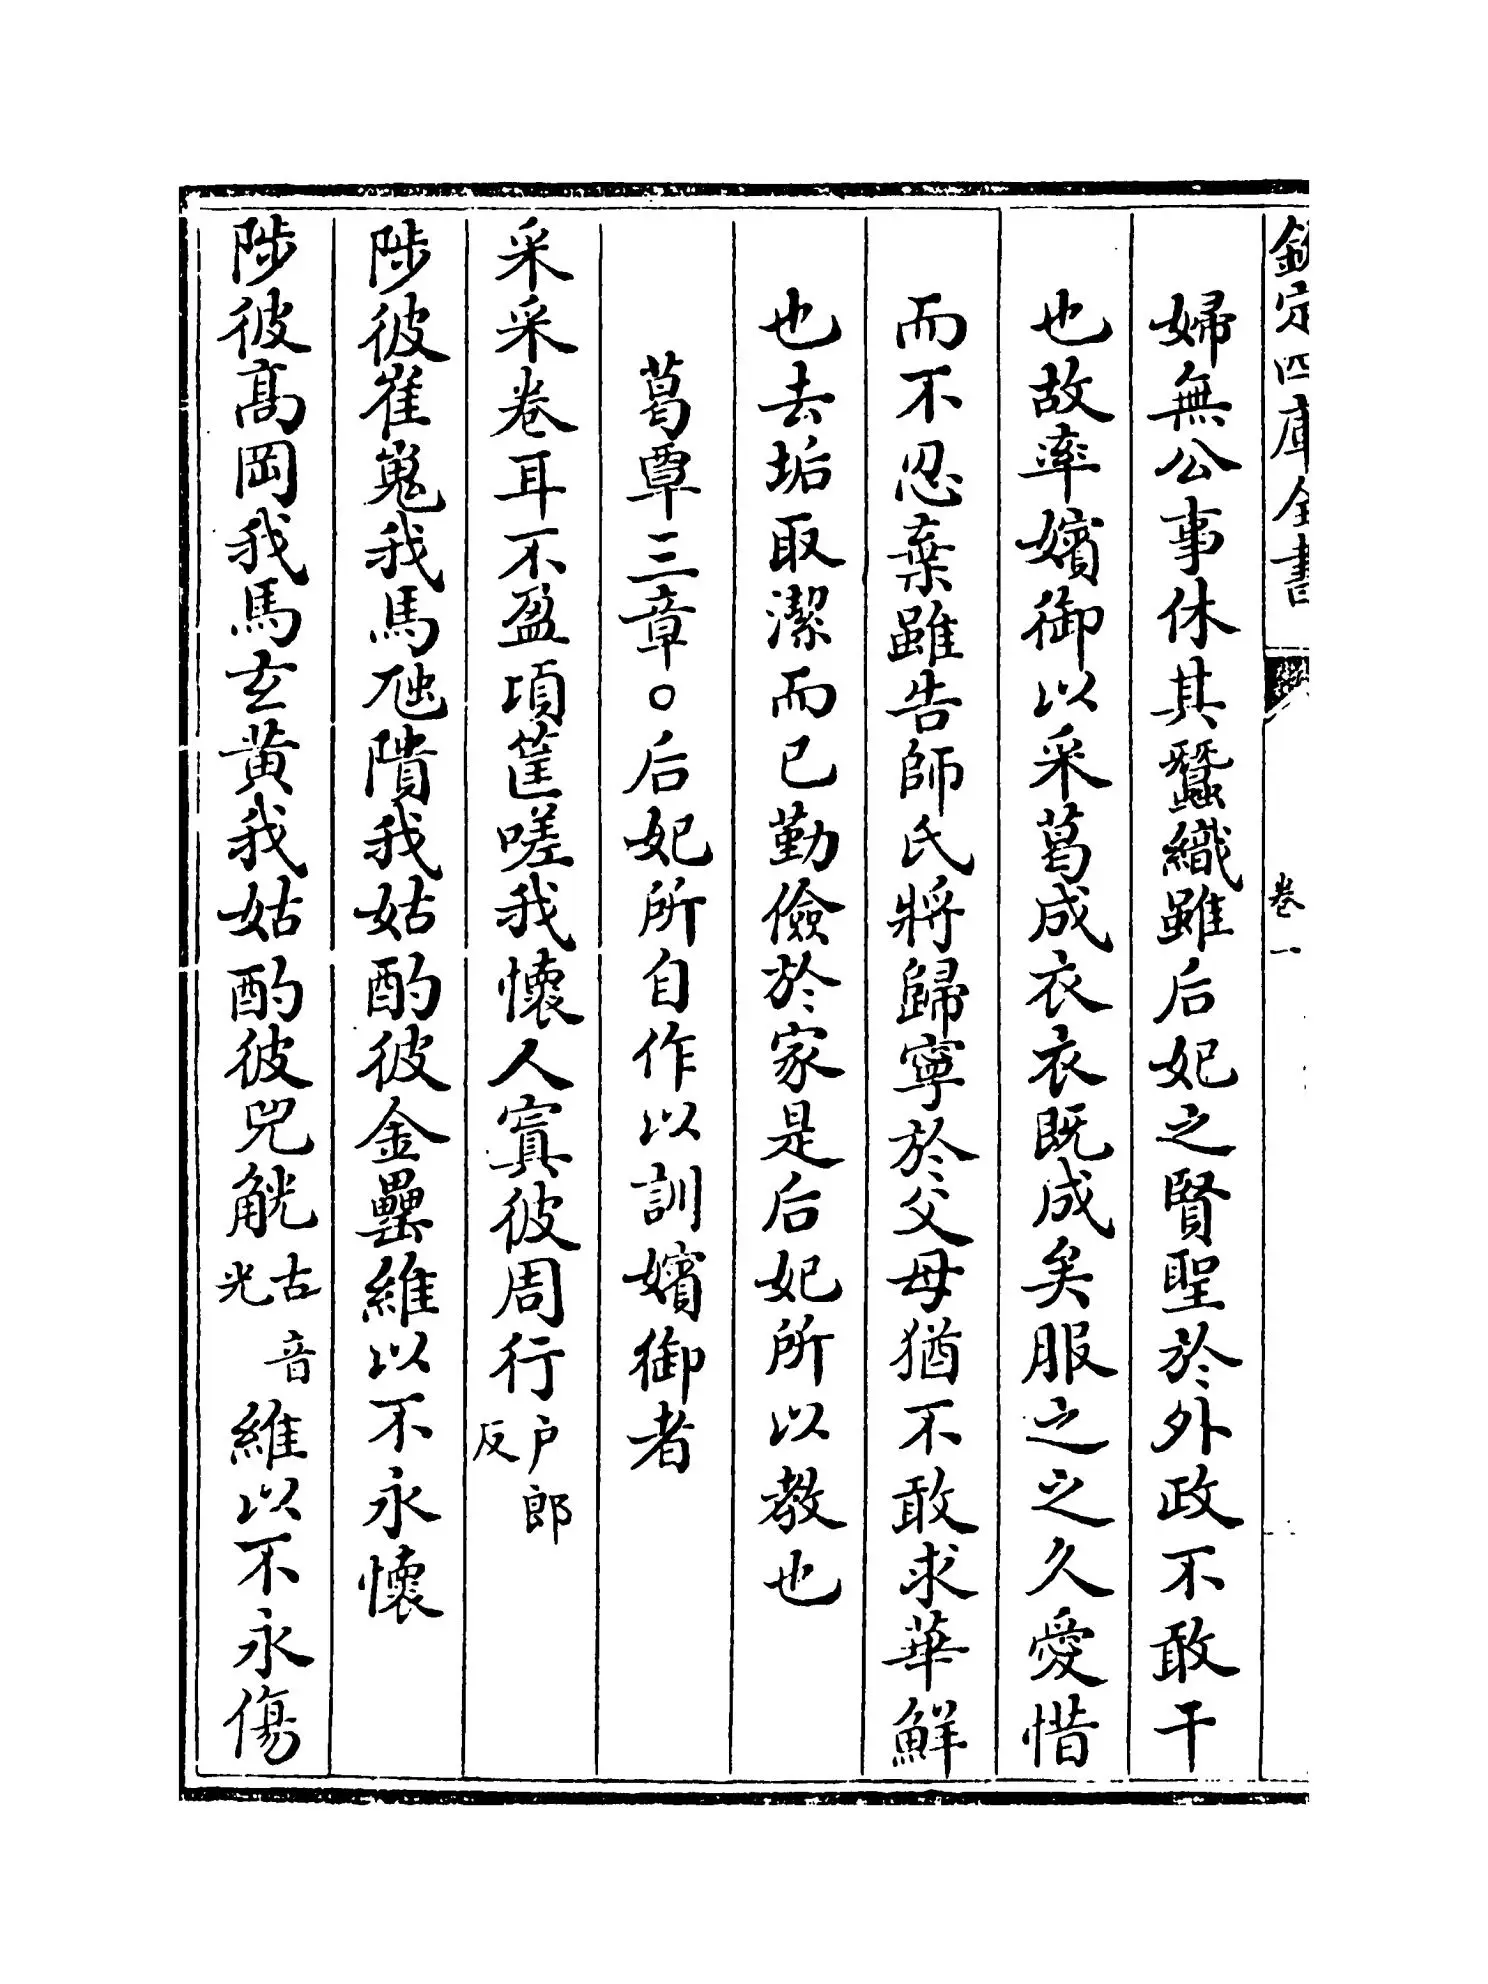 欽定四庫全書
卷一
婦無公事休其蠶織雖后妃之賢聖於外政不敢干
也故率嬪御以采葛成衣衣既成矣服之之久愛惜
而不忍棄雖告師氏將歸寧於父母猶不敢求華鮮
也去垢取潔而已勤儉於家是后妃所以教也
葛覃三章○后妃所自作以訓嬪御者
采采卷耳不盈項筐嗟我懷人寘彼周行户郎反
陟彼崔嵬我馬虺隤我姑酌彼金罍維以不永懷
陟彼髙岡我馬玄黄我姑酌彼兕觥古光音維以不永傷